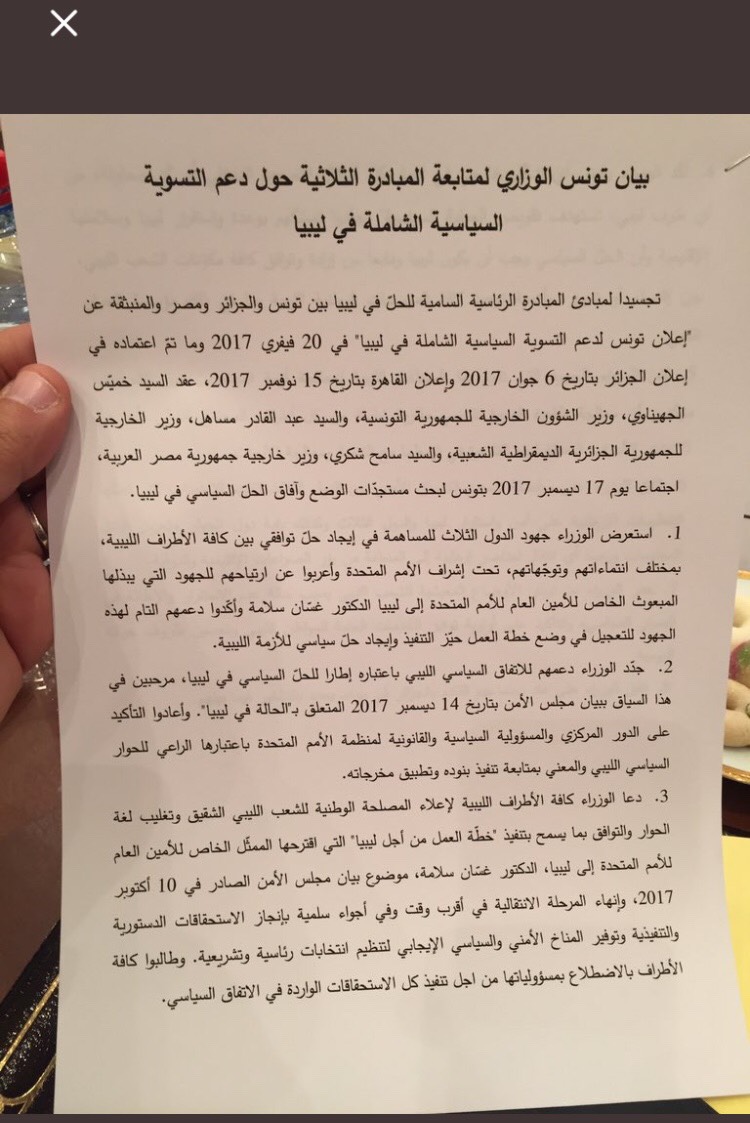 بيان تونس الوزاري لمتابعة المبادرة الثلاثية حول دعم التسوية
السياسية الشاملة في ليبيا
تجسيدا لمبادئ المبادرة الرئاسية السامية للحلّ في ليبيا بين تونس والجزائر ومصر والمنبثقة عن
"إعلان تونس لدعم التسوية السياسية الشاملة في ليبيا" في 20 فيفري 2017 وما تمّ اعتماده في
إعلان الجزائر بتاريخ 6 جوان 2017 وإعلان القاهرة بتاريخ 15 نوفمبر 2017، عقد السيد خميّس
الجهيناوي، وزير الشؤون الخارجية للجمهورية التونسية، والسيد عبد القادر مساهل، وزير الخارجية
للجمهورية الجزائرية الديمقراطية الشعبية، والسيد سامح شكري، وزير خارجية جمهورية مصر العربية،
اجتماعا يوم 17 ديسمبر 2017 بتونس لبحث مستجدّات الوضع وآفاق الحلّ السياسي في ليبيا.
1. استعرض الوزراء جهود الدول الثلاث للمساهمة في إيجاد حلّ توافقي بين كافة الأطراف الليبية،
بمختلف انتماءاتهم وتوجّهاتهم، تحت إشراف الأمم المتحدة وأعربوا عن ارتياحهم للجهود التي يبذلها
المبعوث الخاص للأمين العام للأمم المتحدة إلى ليبيا الدكتور غسّان سلامة وأكّدوا دعمهم التام لهذه
الجهود للتعجيل في وضع خطة العمل حيّز التنفيذ وإيجاد حلّ سياسي للأزمة الليبية.
2. جدّد الوزراء دعمهم للاتفاق السياسي الليبي باعتباره إطارا للحلّ السياسي في ليبيا، مرحبين في
هذا السياق ببيان مجلس الأمن بتاريخ 14 ديسمبر 2017 المتعلق بـ"الحالة في ليبيا". وأعادوا التأكيد
على الدور المركزي والمسؤولية السياسية والقانونية لمنظمة الأمم المتحدة باعتبارها الراعي للحوار
السياسي الليبي والمعني بمتابعة تنفيذ بنوده وتطبيق مخرجاته.
3. دعا الوزراء كافة الأطراف الليبية لإعلاء المصلحة الوطنية للشعب الليبي الشقيق وتغليب لغة
الحوار والتوافق بما يسمح بتنفيذ "خطّة العمل من أجل ليبيا" التي اقترحها الممثّل الخاص للأمين العام
للأمم المتحدة إلى ليبيا، الدكتور غسّان سلامة، موضوع بيان مجلس الأمن الصادر في 10 أكتوبر
2017، وإنهاء المرحلة الانتقالية في أقرب وقت وفي أجواء سلمية بإنجاز الاستحقاقات الدستورية
والتنفيذية وتوفير المناخ الأمني والسياسي الإيجابي لتنظيم انتخابات رئاسية وتشريعية. وطالبوا كافة
الأطراف بالاضطلاع بمسؤولياتها من اجل تنفيذ كل الاستحقاقات الواردة في الاتفاق السياسي.